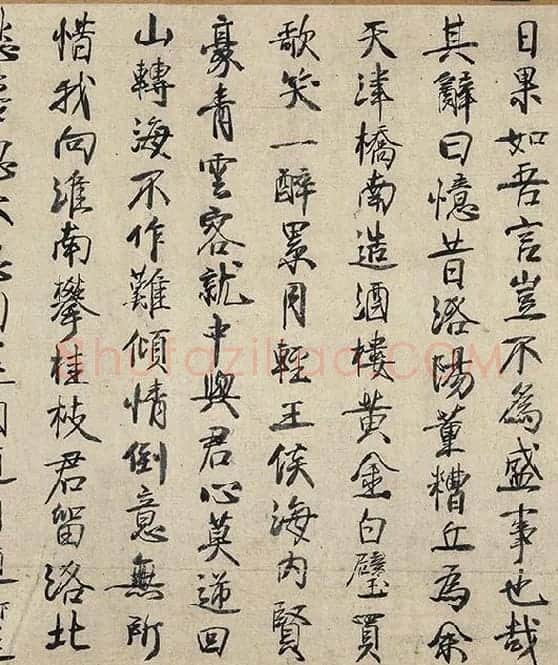 日果如吾言豈不為盛事也哉
其辭曰憶昔洛陽董糟丘為余
天津橋南造酒樓黃金白璧買
歌笑一醉累月輕王侯海內賢
豪青雲客就中與君心莫逆回
山轉海不作難傾情倒意無所
惜我向淮南攀桂枝君留洛北